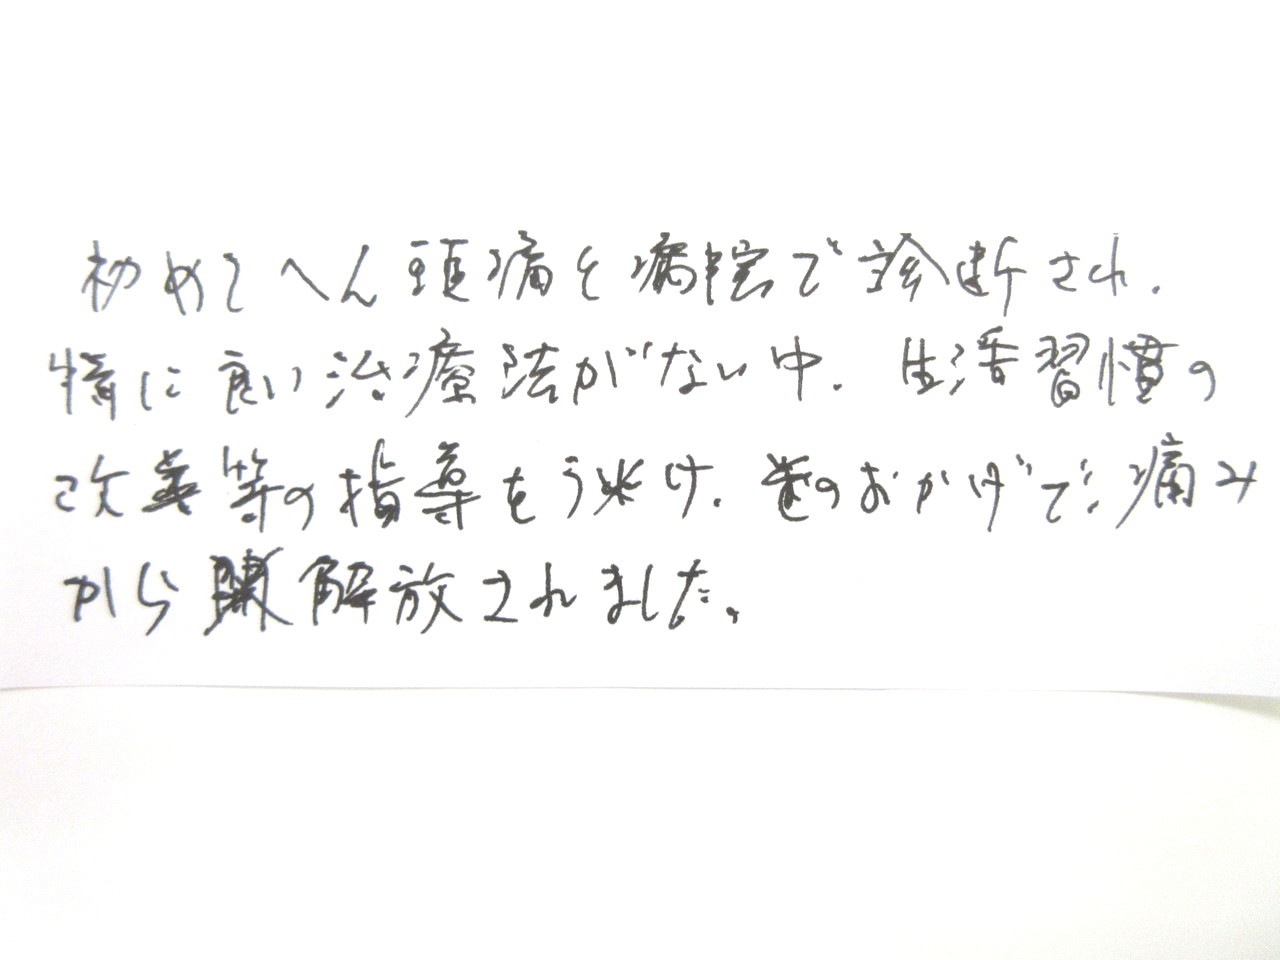 初めてへん頭痛と病院で診断され、
情に良い治療法がない中、生活習慣の
改善等の指導をうけ、そのおかげで、痛み
から解放されました。